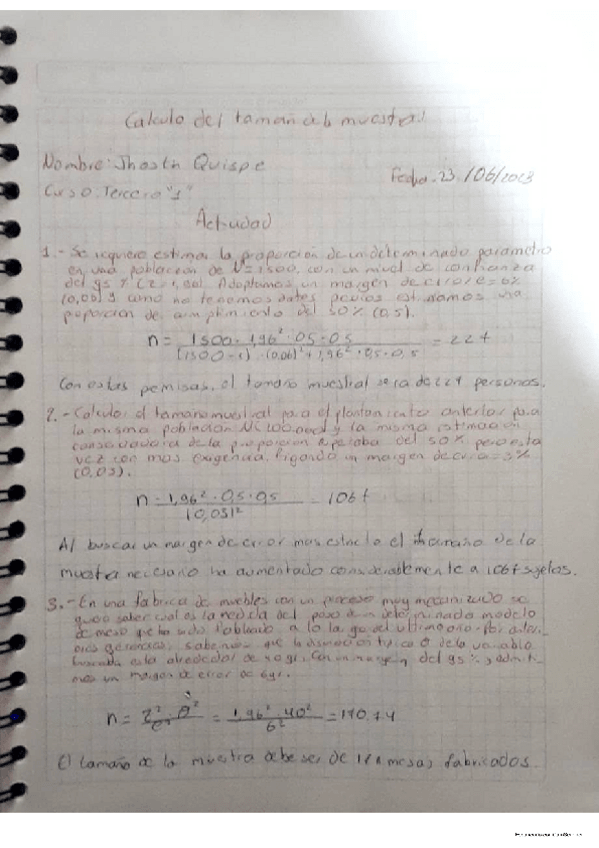 Calculo del tamaño de la muestra
Nombre: Jhostin Quispe
Fecha. 23/06/2023
Curso: Tercero "1"
Actividad
1.- Se requiere estimar la proporción de un determinado parametro
en una población de N=1500, con un nivel de confianza
del 95 % (Z=1,96). Adoptamos un margen de error e=6%
(0,06) y como no tenemos datos previos estimamos una
proporción de cumplimiento del 50% (0,5).
n= 1500 · 1,96² · 0.5 · 0.5 = 227
(1500-1) · (0,06)² + 1,96² · 0,5 · 0,5
Con estas premisas, el tamaño muestral sera de 227 personas.
2.- Calcular el tamaño muestral para el planteamiento anterior para
la misma población y la misma estimación
conservadora de la proporcion del 50% pero esta
vez con mas exigencia, un margen de error = 3%
(0,03).
n= 1,96² · 0,5 · 0,5 = 1067
(0,03)²
Al buscar un margen de error mas estricto el tamaño de la
muestra necesario ha aumentado considerablemente a 1067 sujetos.
3.- En una fabrica de muebles con un proceso muy mecanizado se
quiere saber cual es la medida del peso de un determinado modelo
de mesa que ha sido fabricado a lo largo del ultimo año. Por
gerencias, sabemos que la desviación tipica σ de la variable
buscada esta alrededor de Con un margen del 95 %, admiti-
mos un margen de error de 6gr.
n = Z² · σ² = 1,96² · 40² = 170.74
e² 6²
El tamaño de la muestra debe ser de mesas fabricados.